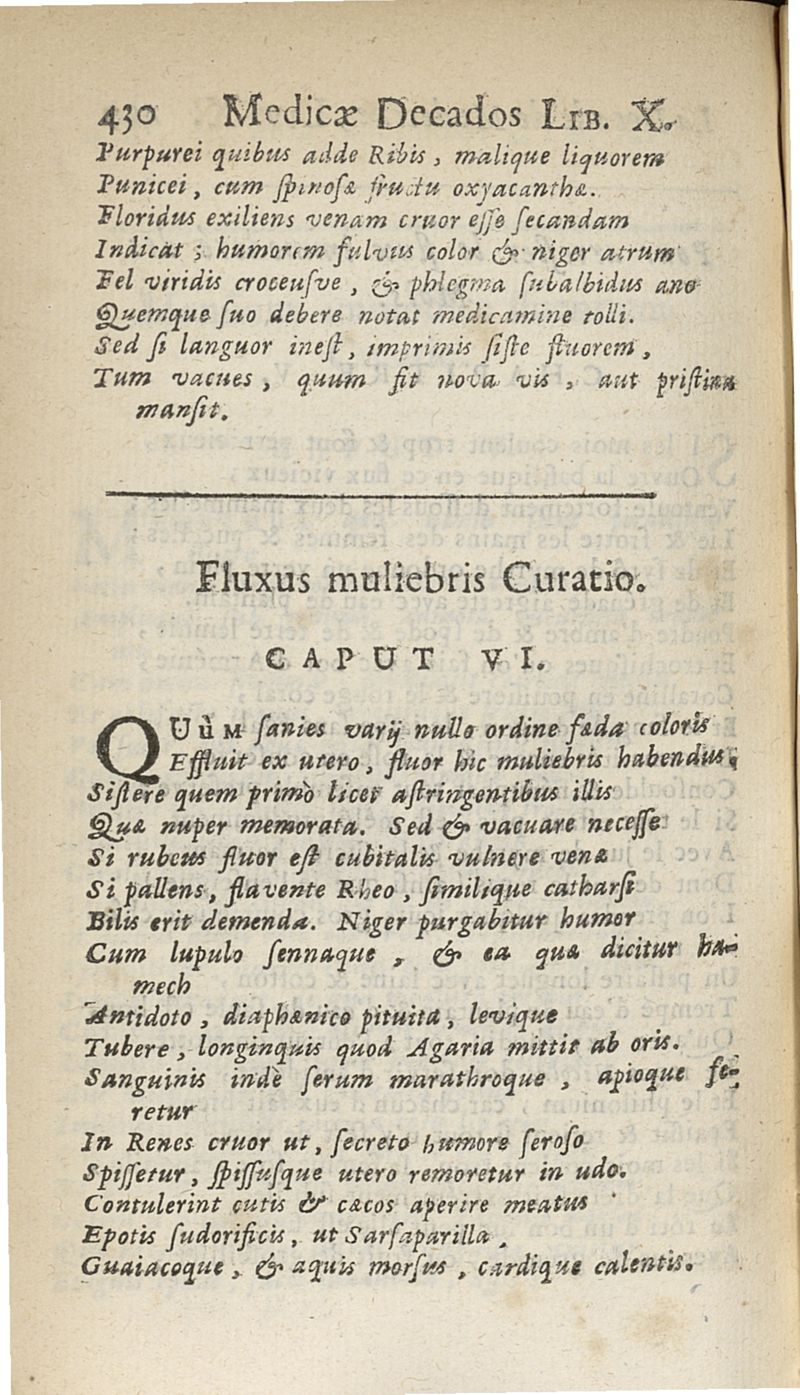 430 Medicæ Decados LIB. X.
Purpurei quibus adde Ribis, malique liquorem
Punicei, cum ſpinoſæ fructu oxyacanthæ.
Floridus exiliens venam cruor eſſe ſecandam
Indicat; humorem fulvus color & niger atrum
Fel viridis croceuſve, & phlegma ſubalbidus ano
Quemque ſuo debere notat medicamine tolli.
Sed ſi languor ineſt, imprimis ſiſte fluorem,
Tum vacues, quum fit nova vis, aut priſtina
manſit.
Fluxus muliebris Curatio.
CAPUT VI.
QUùM ſanies varij nullo ordine fæda coloris
Effluit ex utero, fluor hic muliebris habendus.
Siſtere quem primò licet aſtringentibus illis
Quæ nuper memorata. Sed & vacuare neceſſe
Si rubeus fluor eſt cubitalis vulnere venæ
Si pallens, flavente Rheo, ſimilique catharſi
Bilis erit demenda. Niger purgabitur humor
Cum lupulo ſennaque, & ea quæ dicitur ha-
mech
Antidoto, diaphænico pituita, levique
Tubere, longinquis quod Agaria mittit ab oris.
Sanguinis indè ſerum marathroque, apioque fe-
retur
In Renes cruor ut, ſecreto humore ſeroſo
Spiſſetur, ſpiſſuſque utero remoretur in udo.
Contulerint cutis & cæcos aperire meatus
Epotis ſudorificis, ut Sarſaparilla,
Guaiacoque, & aquis morſus, cardique calentis.